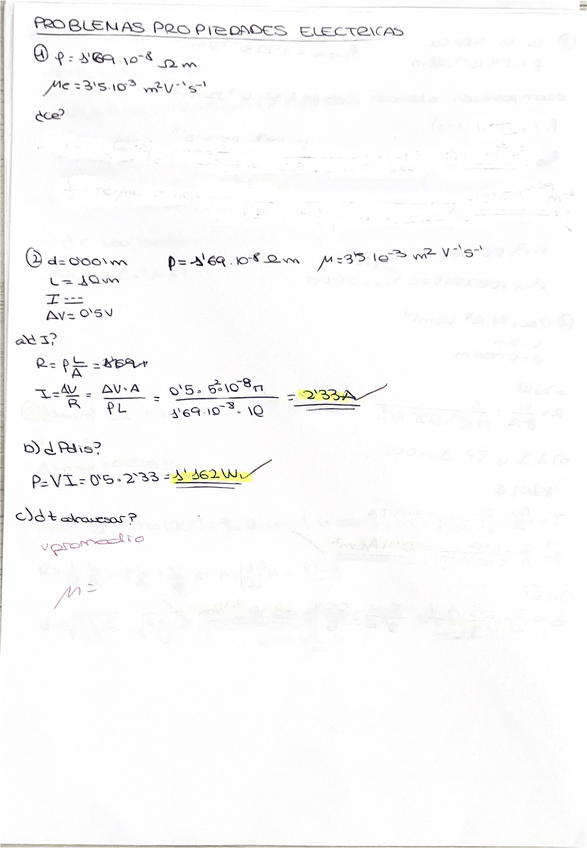 PROBLEMAS PROPIEDADES ELECTRICAS
① ρ = 1'69·10⁻⁸ Ω m
μe = 3'5·10⁻³ m²V⁻¹s⁻¹
d ce?
② d = 0'001m ρ = 1'69·10⁻⁸ Ω m μ = 3'5 10⁻³ m² V⁻¹s⁻¹
L = 10m
I ---
ΔV = 0'5V
a) d I?
R = ρ L/A =
I = ΔV/R = ΔV·A / ρL = 0'5 · 5²·10⁻⁸π / 1'69·10⁻⁸ · 10 = 2'33A ✓
b) d Pdis?
P = VI = 0'5 · 2'33 = 1'162W ✓
c) d t atravesar?
v promedio
μ =